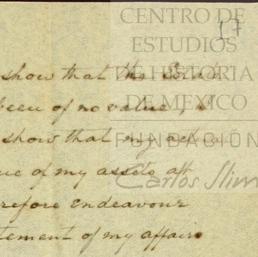 CENTRO DE
ESTUDIOS
DE HISTORIA
DE MEXICO
FUNDACIÓN
Carlos Slim
17
show that the
been of no value,
show that my
ue of my assets at
refore endeavour
tement of my affairs